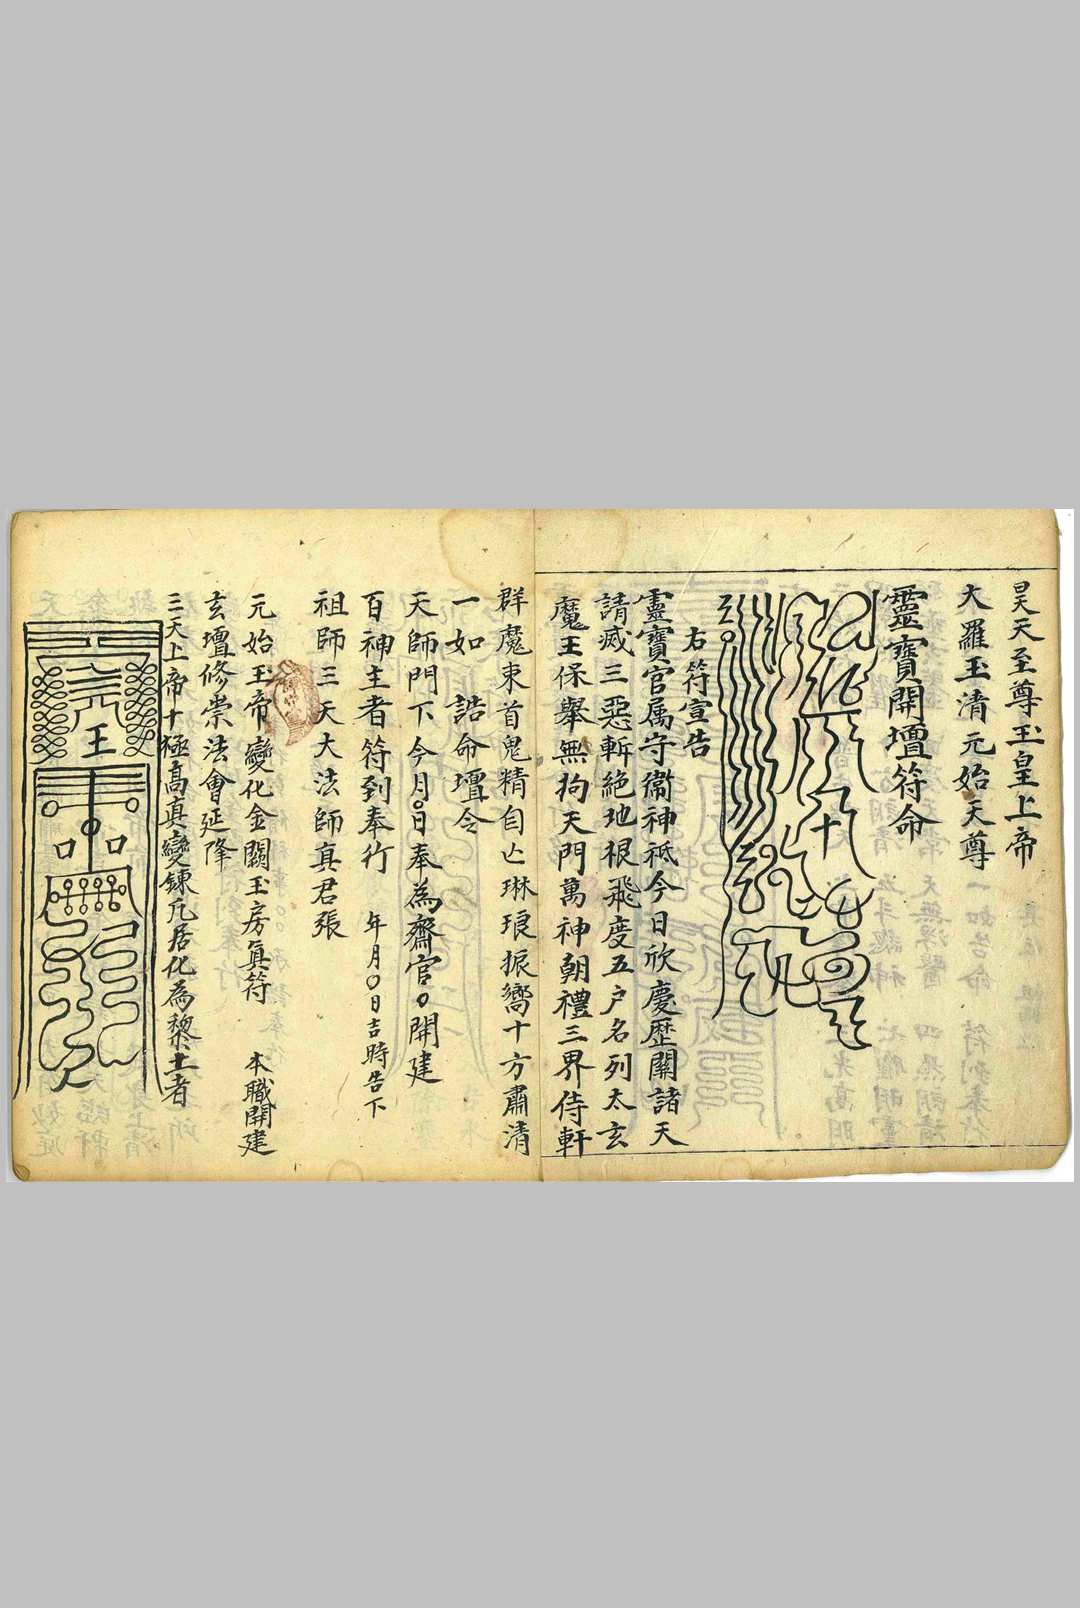 昊天至尊玉皇上帝
大羅玉清元始天尊
靈寶開壇符命
右符宣告
靈寶官属守衛神祗今日欣慶歷關諸天
請滅三惡斬絕地根飛度五户名列太玄
魔王保舉無拘天門萬神朝禮三界侍軒
群魔束首鬼精自亡琳琅振嚮十方肅清
一如 誥命壇令
天師門下今月〇日奉為齋官〇開建
百神主者符到奉行 年月〇日吉時告下
祖師三天大法師真君張
元始玉帝變化金闕玉房眞符 本職開建
玄壇修崇法會延降
三天上帝十極高真變鍊凡居化為黎土者